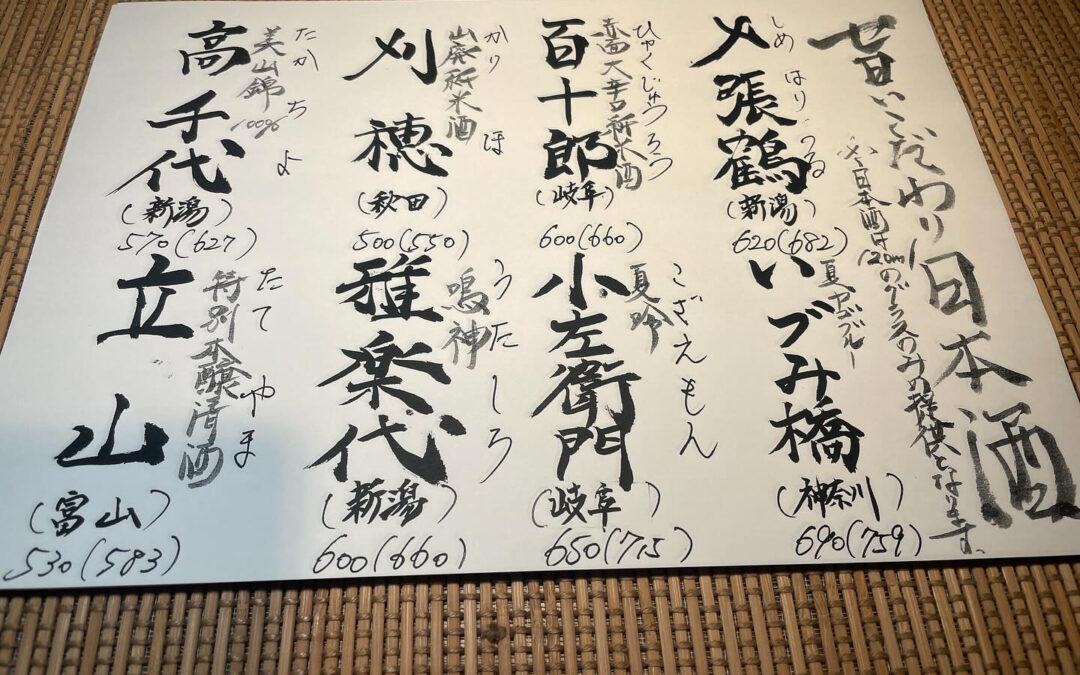 日本酒
※日本酒は120mlのグラスのみの提供となります。
しめはりつる
〆張鶴
(新潟)
620(682)
夏ヤゴブルー
いづみ橋
(神奈川)
690(759)
ひゃくじゅうろう
百十郎
赤面大辛口純米酒
(岐阜)
600(660)
こざえもん
小左衛門
夏吟
(岐阜)
650(715)
かりほ
刈穂
山廃純米酒
(秋田)
500(550)
うたしろ
雅楽代
鳴神
(新潟)
600(660)
たかちよ
高千代
美山錦100%
(新潟)
570(627)
たてやま
立山
特別本醸清酒
(富山)
530(583)